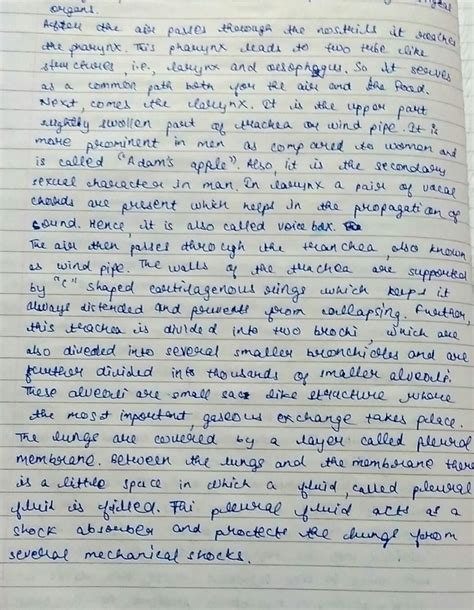 organs.
After the air passes through the nosthrils it reaches
the pharynx. This pharynx leads to two tube like
structures, i.e., larynx and oesophagus. So it serves
as a common path both for the air and the food.
Next, comes the larynx. It is the upper part
slightly swollen part of trachea or wind pipe. It is
more prominent in men as compared to woman and
is called "Adam's apple". Also, it is the secondary
sexual character in man. In larynx a pair of vocal
chords are present which helps in the propagation of
sound. Hence, it is also called voice box.
The air then passes through the tranchea, also known
as wind pipe. The walls of the trachea are supported
by "c" shaped cartilagenous rings which keeps it
always distended and prevents from collapsing. Further,
this trachea is divided into two brochi, which are
also diveded into several smaller bronchioles and are
further divided into thousands of smaller alveoli.
These alveoli are small sac like structure where
the most important, gaseous exchange takes place.
The lungs are covered by a layer called pleural
membrane. Between the lungs and the membrane there
is a little space in which a fluid, called pleural
fluid is filled. This pleural fluid acts as a
shock absorber and protects the lungs from
several mechanical shocks.